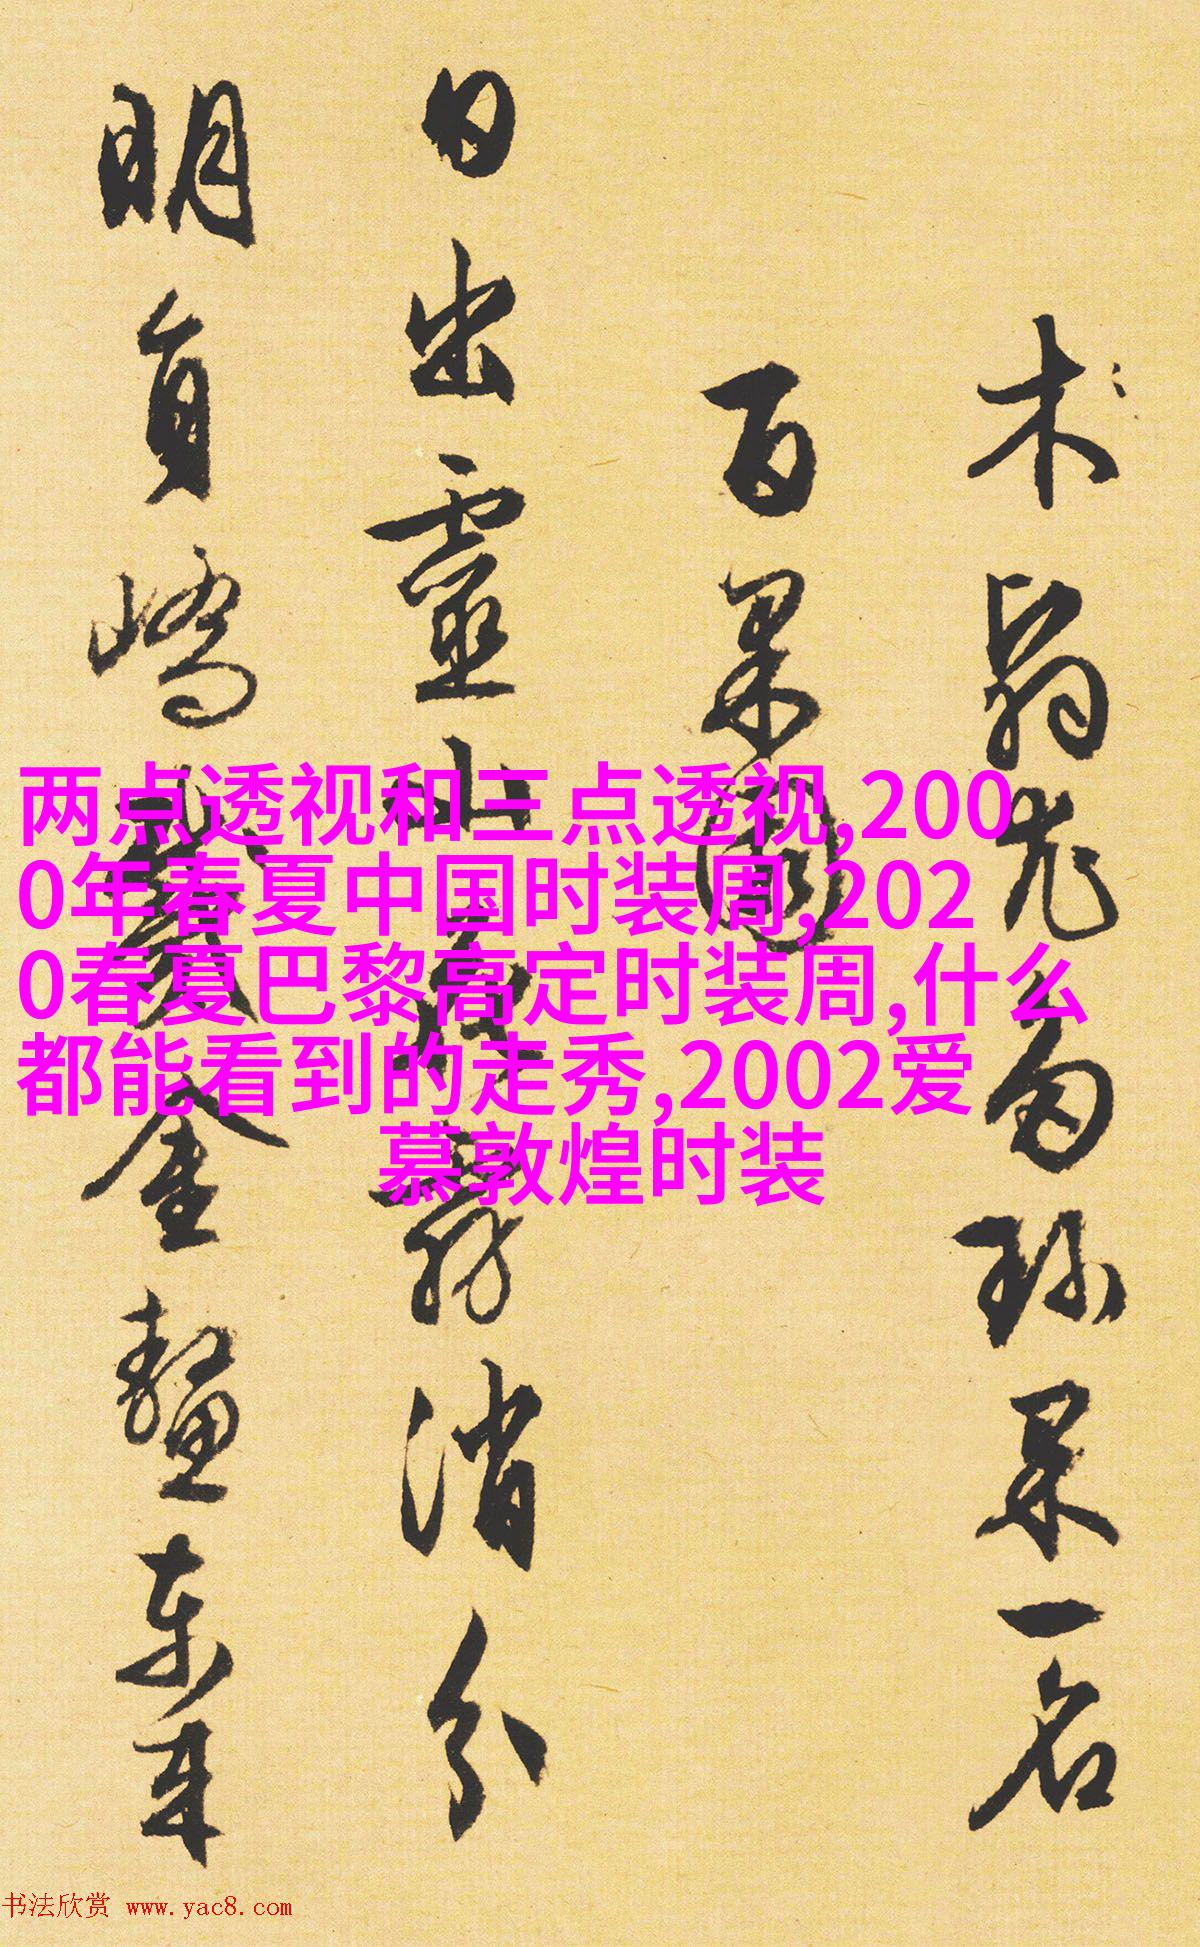 术弱尤白珎果一名
百果园
日出灵山
消分
明负峤
金鳌东来
两点透视和三点透视,200
0年春夏中国时装周,202
0春夏巴黎高定时装周,什么
都能看到的走秀,2002爱
慕敦煌时装
书法欣赏 www.yac8.com